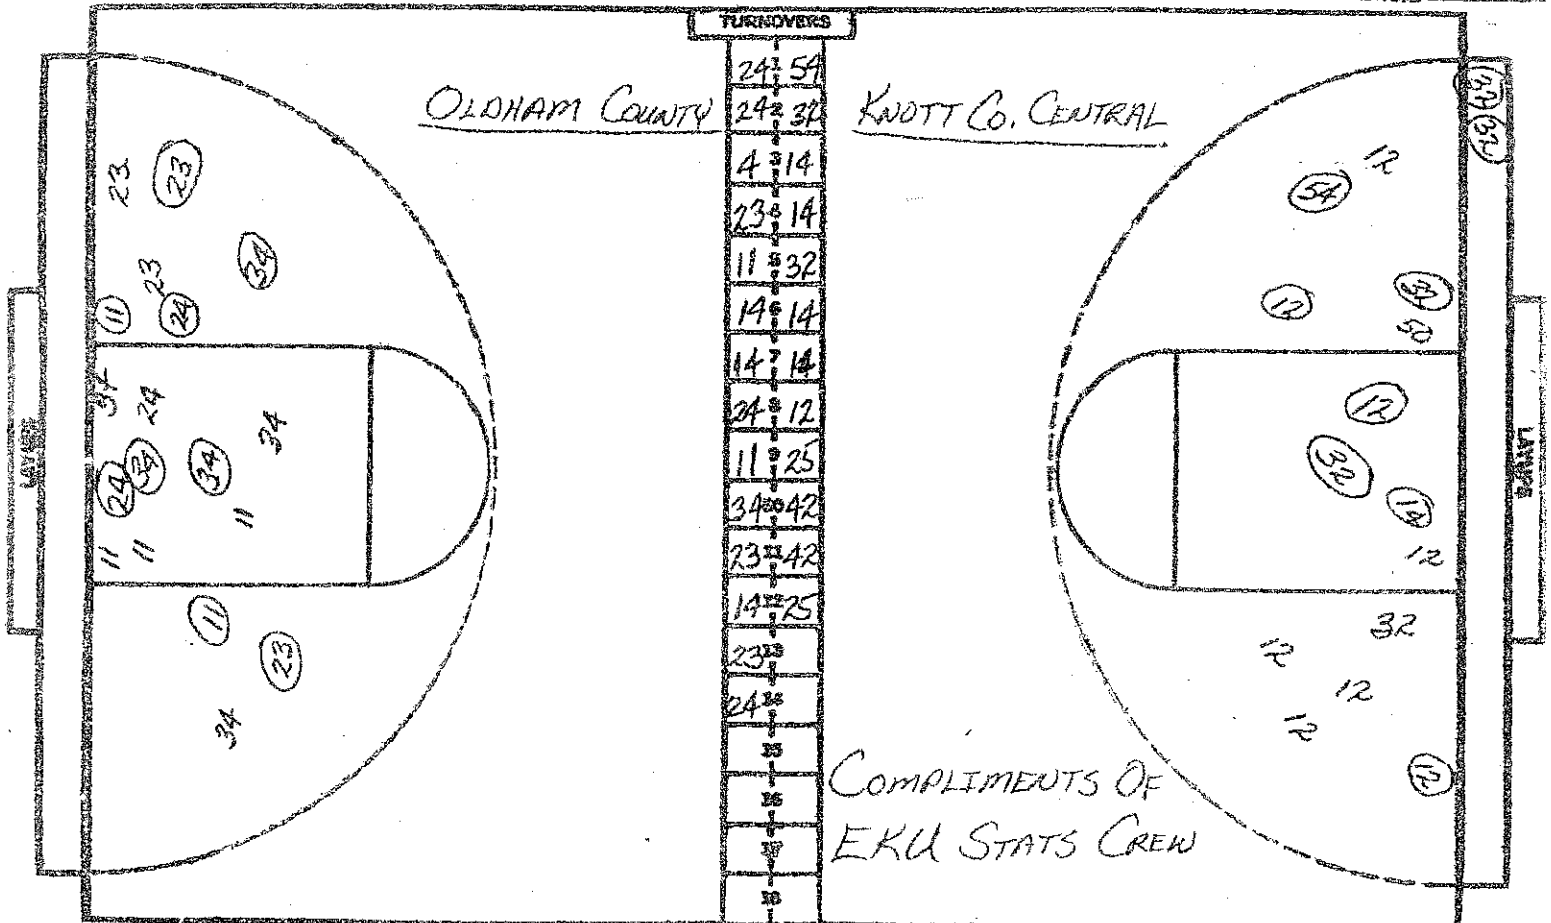 TURNOVERS
OLDHAM COUNTY
KNOTT CO. CENTRAL
24 1 54
24 2 32
4 3 14
23 4 14
11 5 32
14 6 14
14 7 14
24 8 12
11 9 25
34 10 42
23 11 42
14 12 25
23 13
24 14
15
16
17
18
23
23
34
23
11
24
34
24
34
34
34
24
11
11
11
11
23
34
32
12
54
12
32
50
12
32
14
12
32
12
12
12
12
LAYUPS
COMPLIMENTS OF
EKU STATS CREW